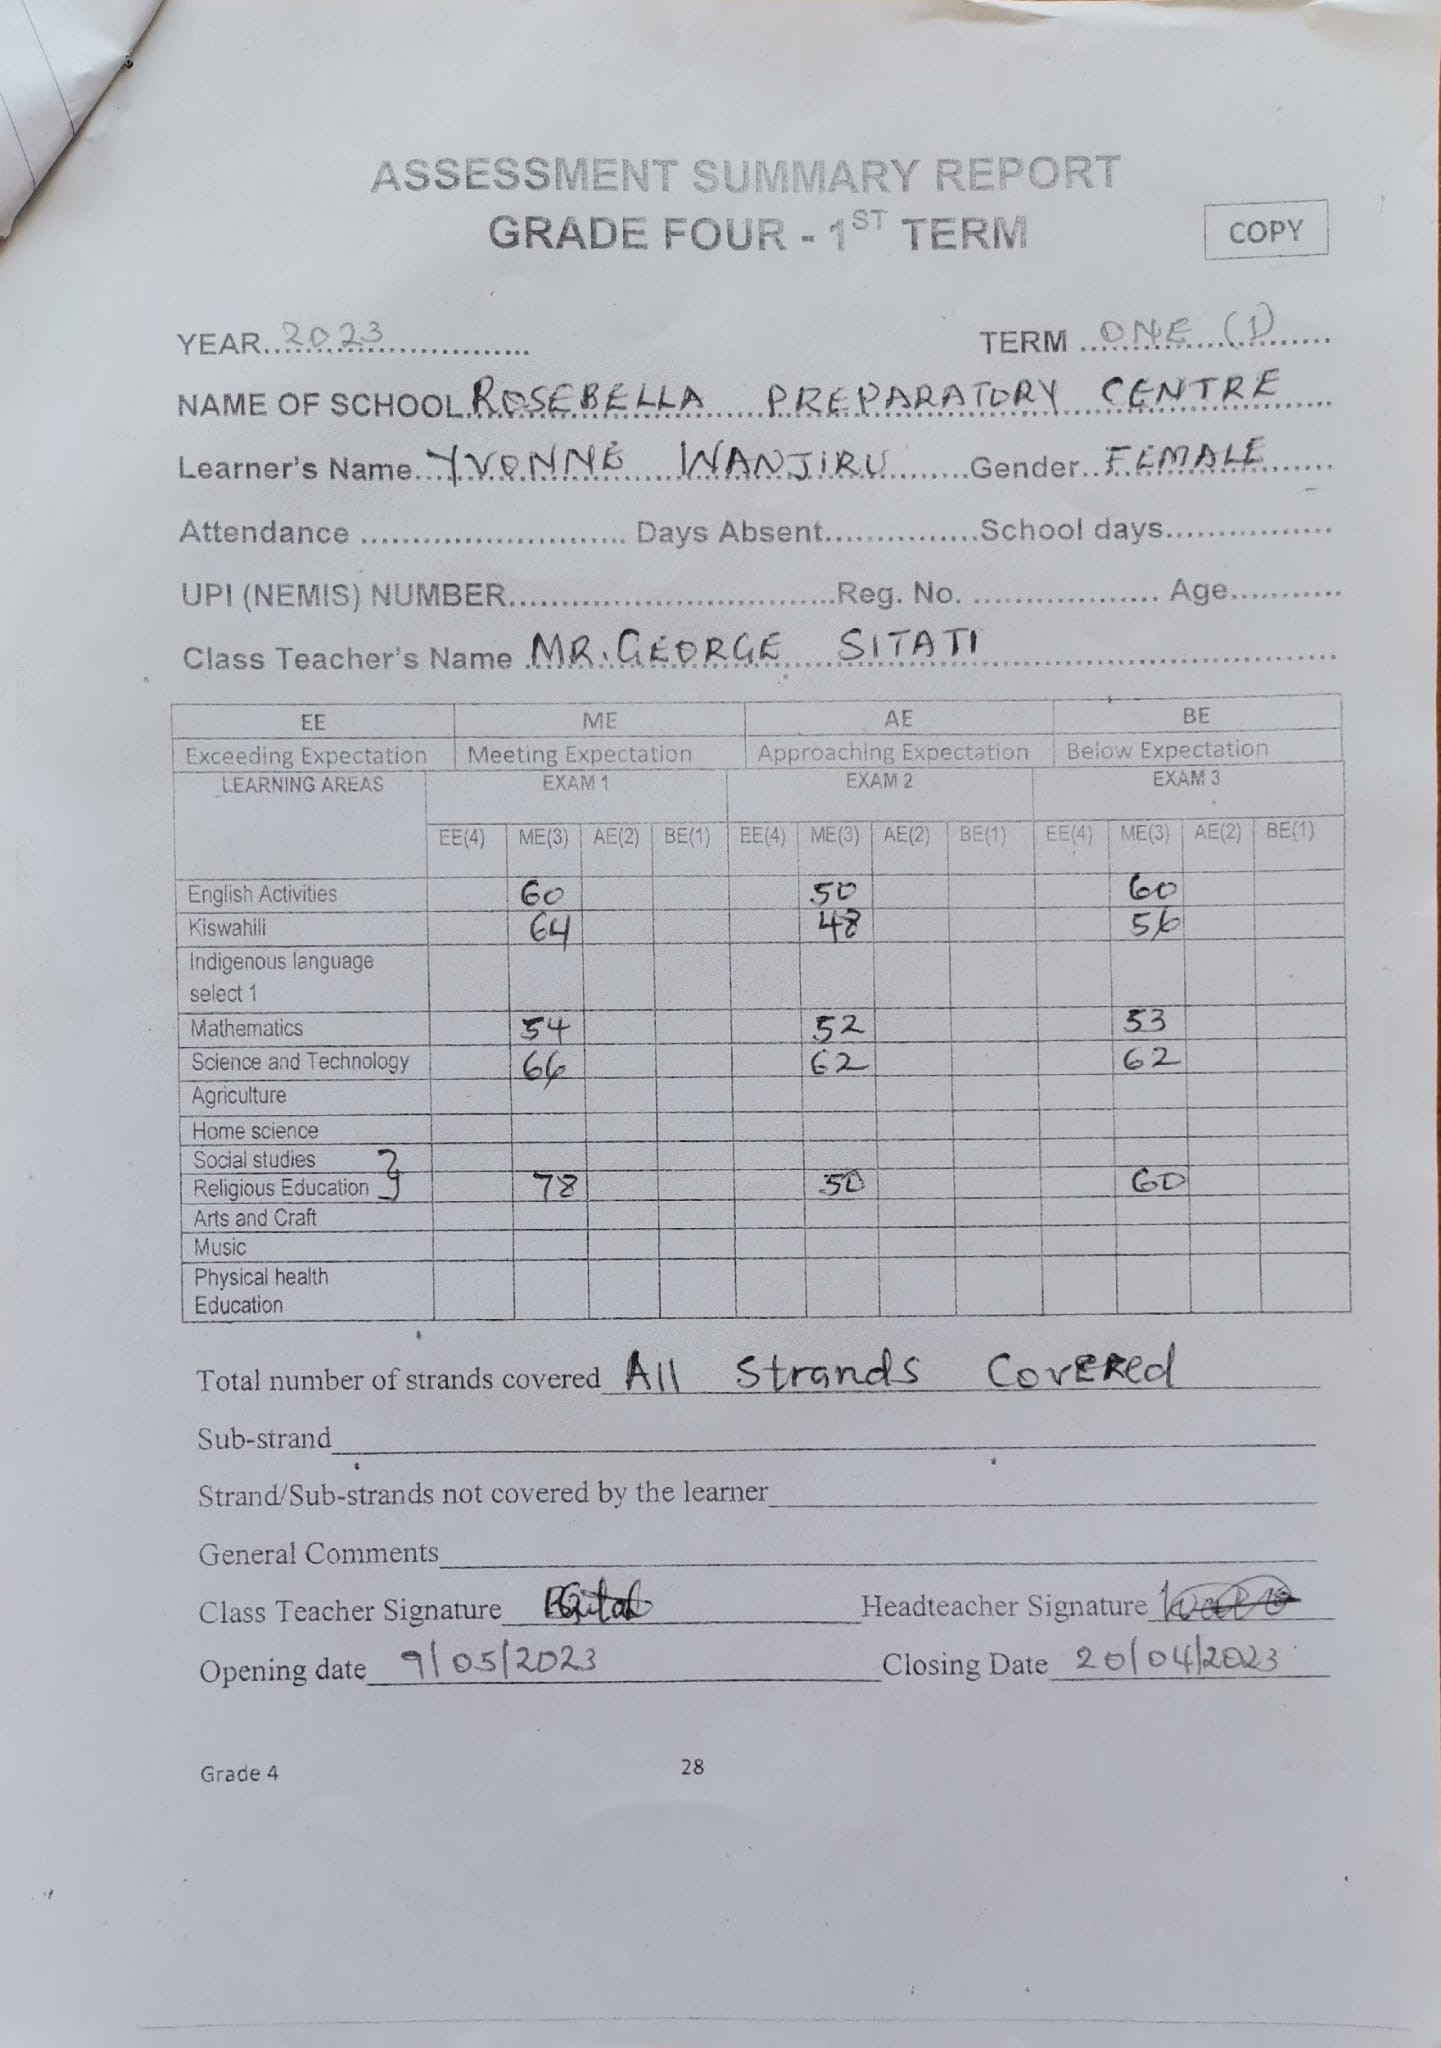 ASSESSMENT SUMMARY REPORT
GRADE FOUR - 1ST TERM
COPY
YEAR..2023.......................... TERM ...ONE (1)......
NAME OF SCHOOL ROSEBELLA PREPARATORY CENTRE
Learner's Name...YVONNE WANJIRU........Gender..FEMALE......
Attendance .......................... Days Absent...............School days................
UPI (NEMIS) NUMBER................................Reg. No. .................. Age...........
Class Teacher's Name .MR. GEORGE SITATI..............................
EE ME AE BE
Exceeding Expectation Meeting Expectation Approaching Expectation Below Expectation
LEARNING AREAS EXAM 1 EXAM 2 EXAM 3
EE(4) ME(3) AE(2) BE(1) EE(4) ME(3) AE(2) BE(1) EE(4) ME(3) AE(2) BE(1)
English Activities 60 50 60
Kiswahili 64 48 56
Indigenous language
select 1
Mathematics 54 52 53
Science and Technology 66 62 62
Agriculture
Home science
Social studies
Religious Education 78 50 60
Arts and Craft
Music
Physical health
Education
Total number of strands covered All Strands CovERed
Sub-strand
Strand/Sub-strands not covered by the learner
General Comments
Class Teacher Signature Headteacher Signature
Opening date 9/05/2023 Closing Date 20/04/2023
Grade 4 28